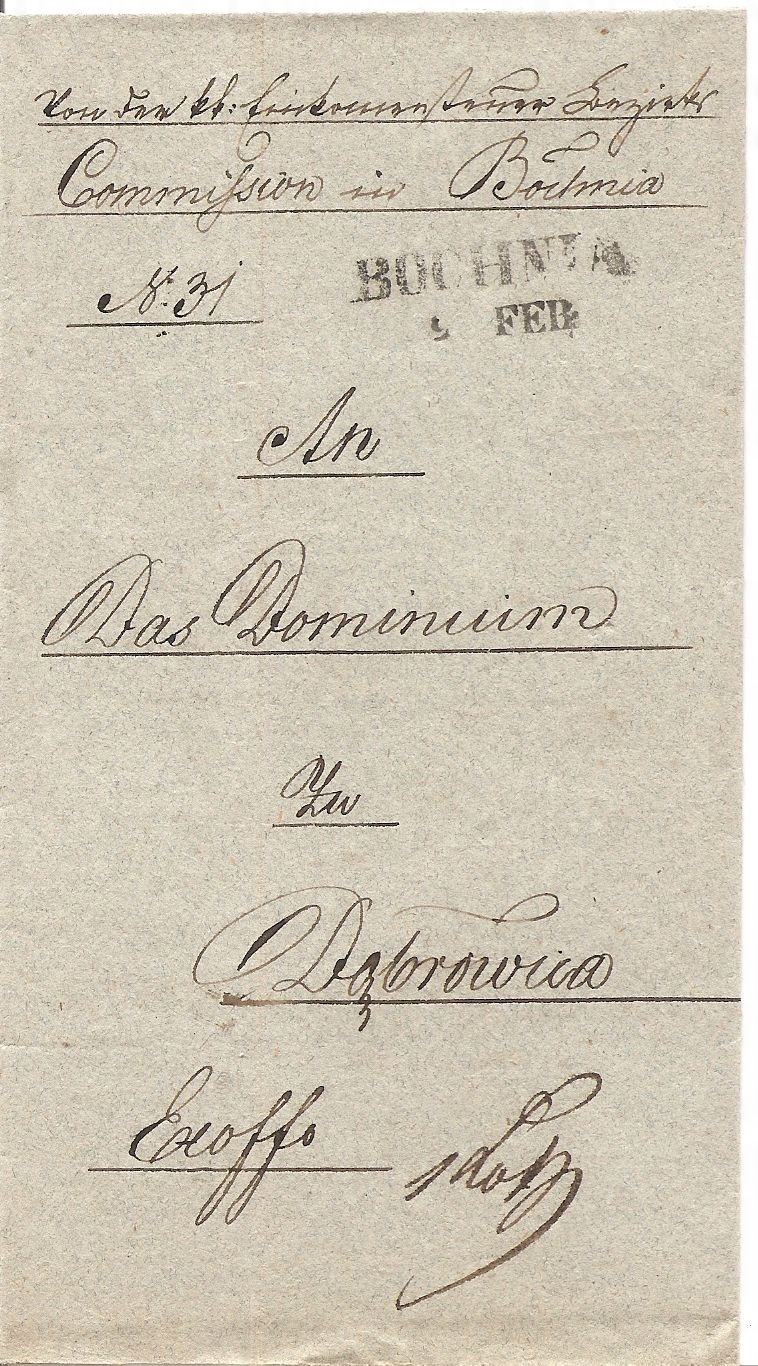 Von der kk: Einkom̄ensteuer Bezirks
Commission in Bochnia
No. 31
BOCHNIA
9 FEB.
An
Das Dominium
Zu
Dąbrowica
Exoffo
1 Loth